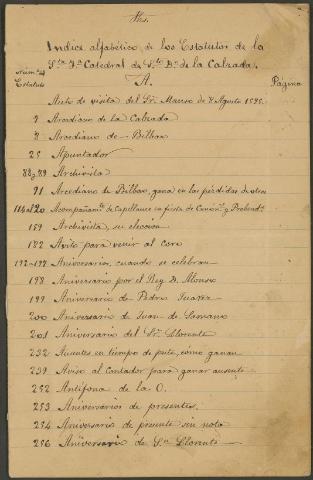 Indice alfabético de los Estatutos de la
Sta Ya Catedral de Sto Do de la Calzada.
Num. del Estatuto A. Página
Auto de visita del Sr. Manso de 8 Agosto 1595.
2 Arcediano de la Calzada
2 Arcediano de Bilbao
25 Apuntador
88 y 89 Archivista
91 Arcediano de Bilbao, gana en las pérdidas de otros
114 al 20 Acompañamto de Capellanes en fiesta de y Prebends
159 Archivista, su eleccion
182 Aviso para venir al Coro
192-197 Aniversarios, cuando se celebran
198 Aniversario por el Rey D. Alonso
199 Aniversario de Pedro Suarez
200 Aniversario de Juan de Serrano
201 Aniversario del Sr. Llorente
232 Ausentes en tiempo de peste, cómo ganan
239 Aviso al Contador para ganar ausente
252 Antífona de la O.
253 Aniversarios de presentes.
254 Aniversario de presente sin nota
256 Aniversario de Sn Llorente